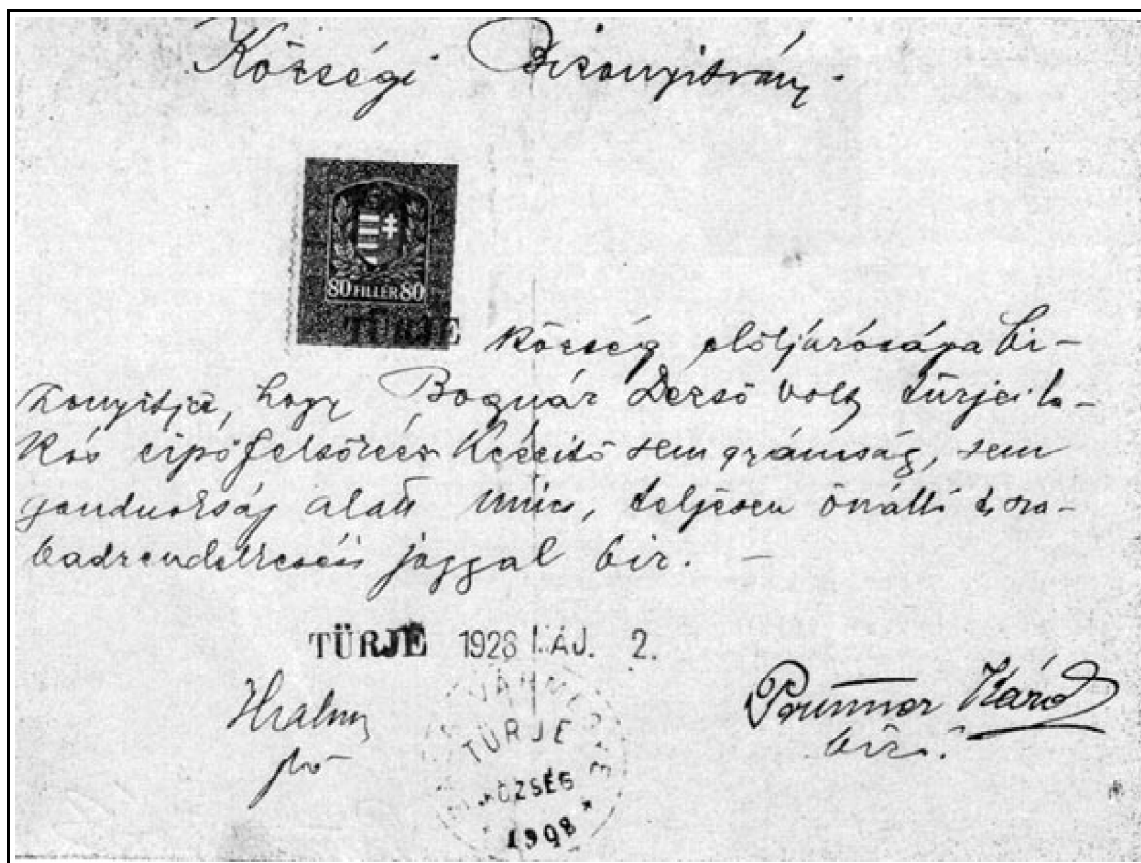 Községi Bizonyitvány
80 FILLÉR 80
TÜRJE község elöljárósága bi-
zonyitja, hogy Bognár Dezső volt türjei la-
kós cipőfelsőrész készitő sem gyámság, sem
gondnokság alatt nincs, teljesen önálló s sza-
badrendelkezési joggal bir. –
TÜRJE 1928 MÁJ. 2.
Károly
biró.
TÜRJE
KÖZSÉG
1908